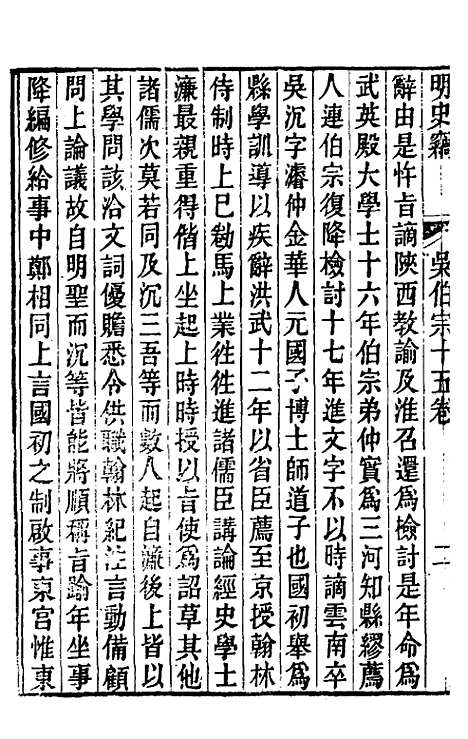 明史竊
吳伯宗十五卷
二
辭由是忤旨謫陝西教諭及淮召還爲檢討是年命爲
武英殿大學士十六年伯宗弟仲實爲三河知縣繆薦
人連伯宗復降檢討十七年進文字不以時謫雲南卒
吳沉字濬仲金華人元國子博士師道子也國初舉爲
縣學訓導以疾辭洪武十二年以省臣薦至京授翰林
侍制時上已勑馬上業徃徃進諸儒臣講論經史學士
濂最親重得偕上坐起上時時授以旨使爲詔草其他
諸儒次莫若同及沉三吾等而數人起自濂後上皆以
其學問該洽文詞優贍悉令供職翰林紀注言動備顧
問上論議故自明聖而沉等皆能將順稱旨踰年坐事
降編修給事中鄭相同上言國初之制啟事東宮惟東